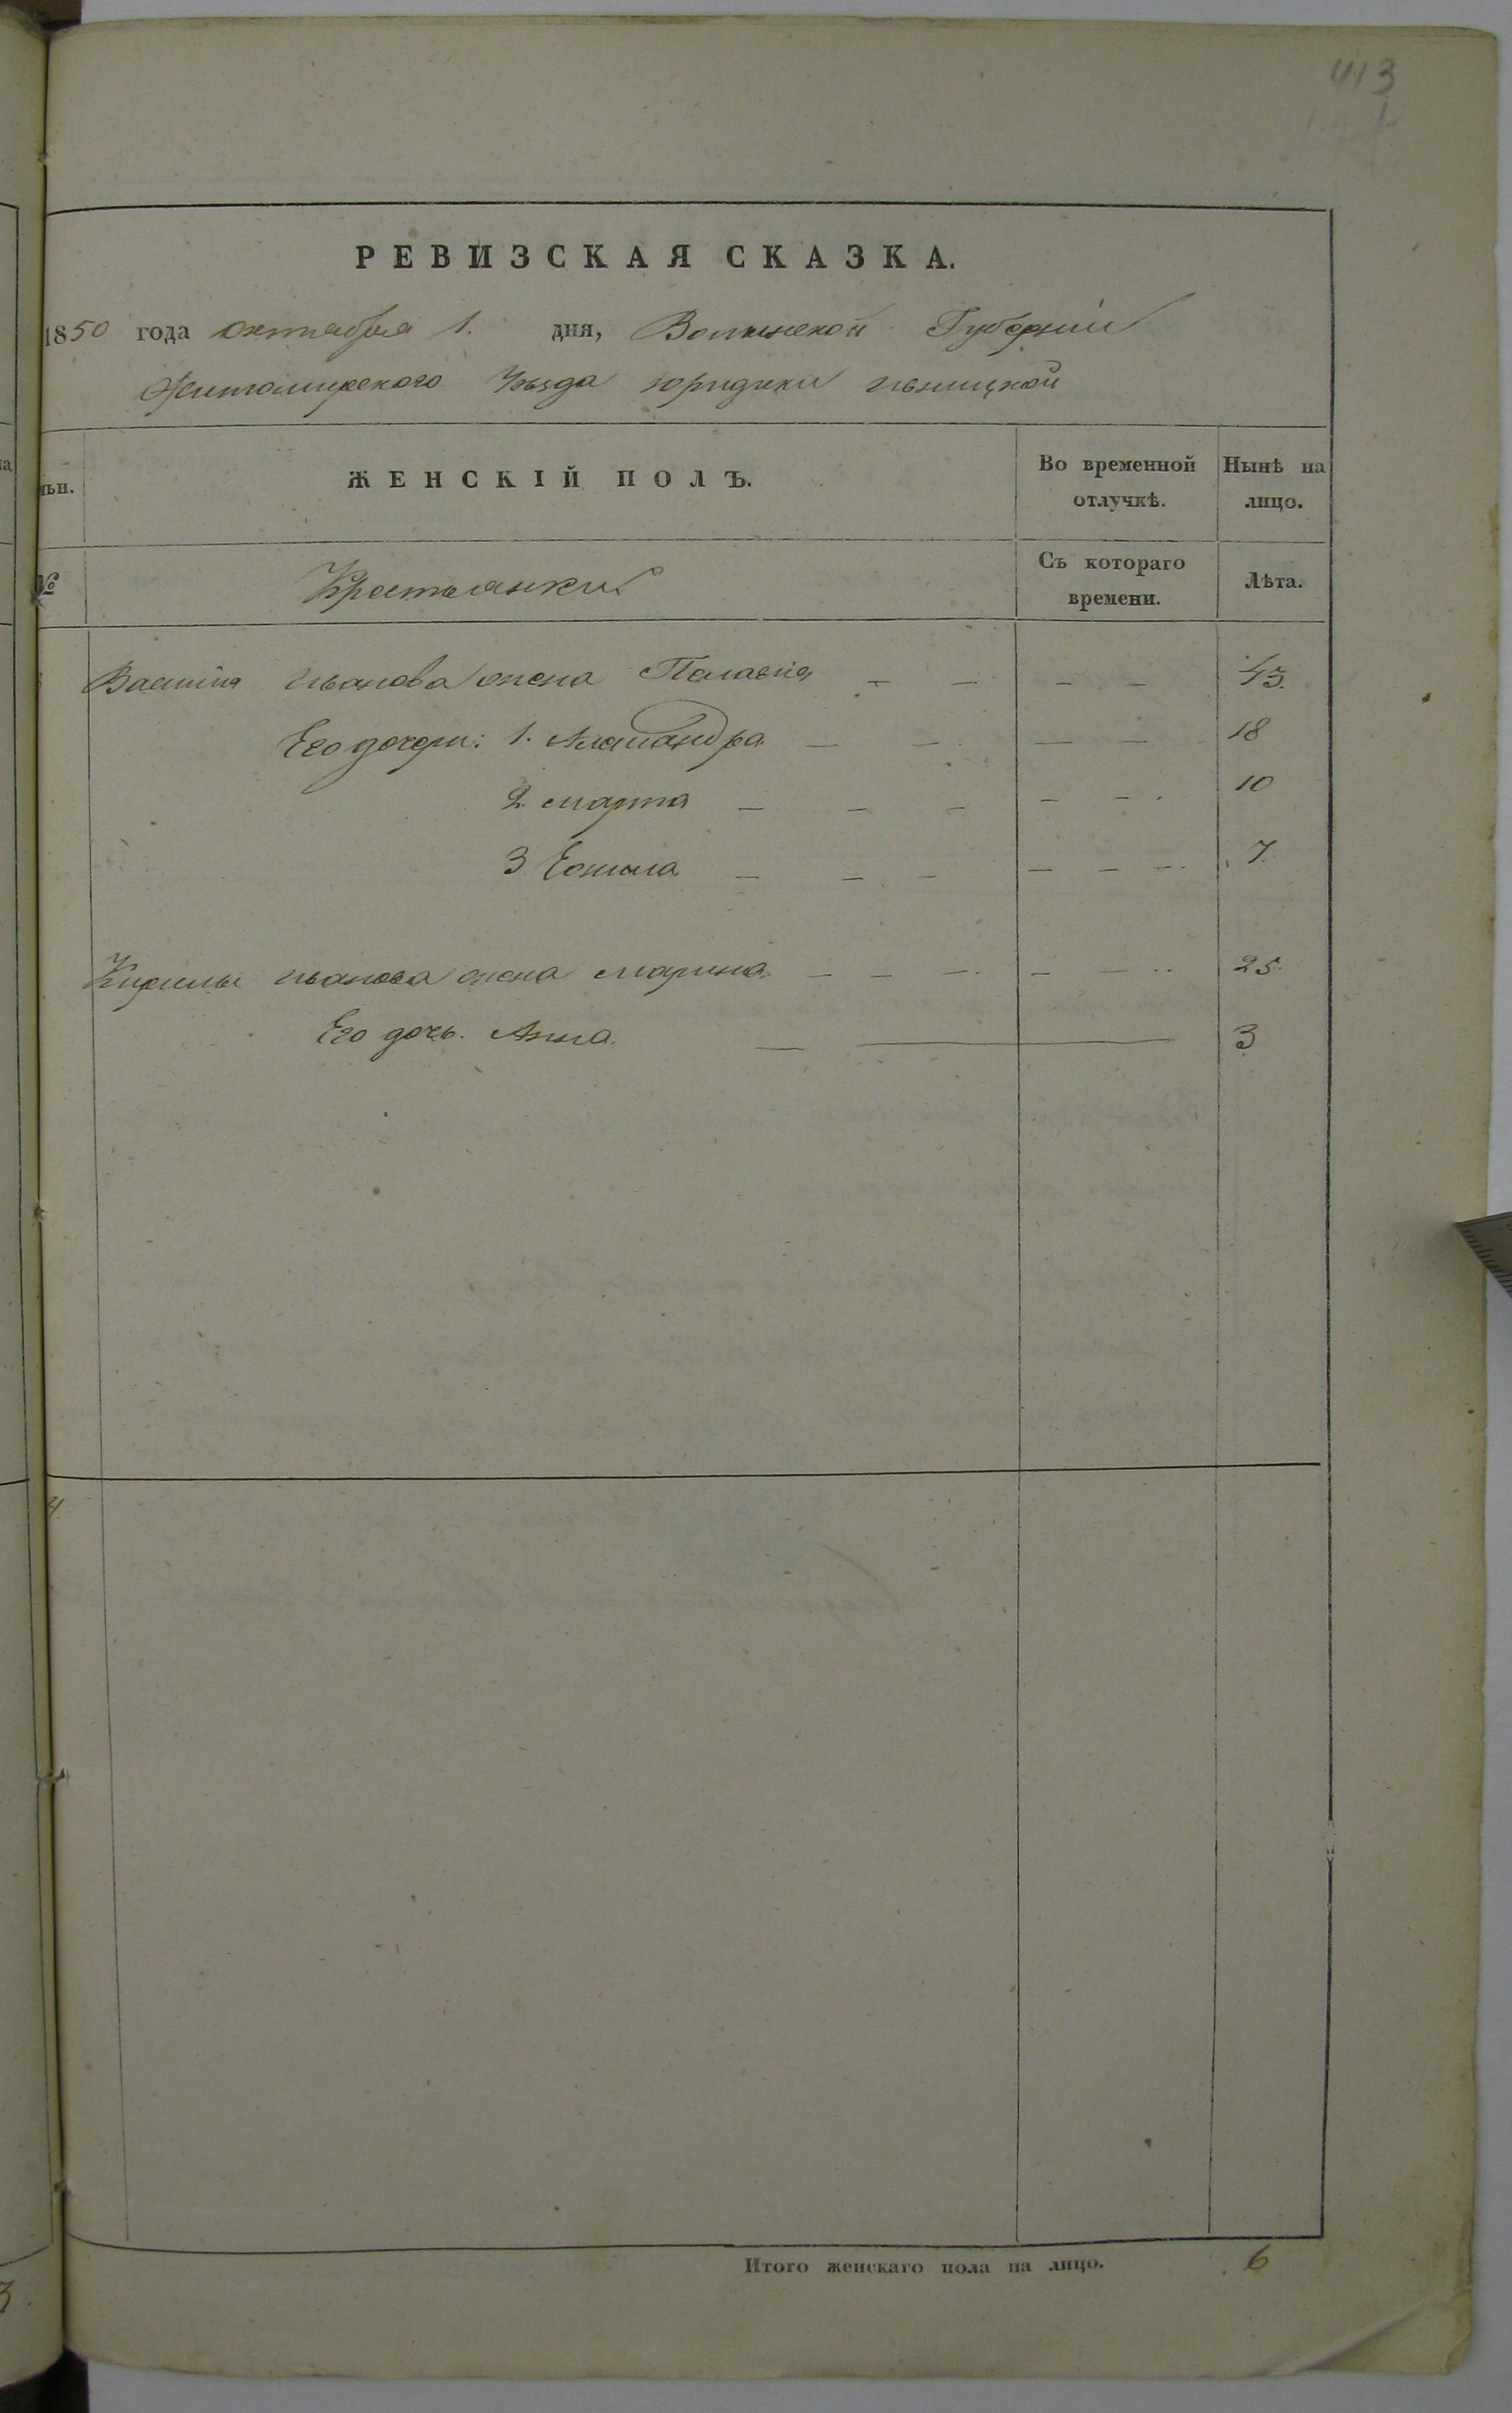 413
РЕВИЗСКАЯ СКАЗКА.
1850 года октября 1. дня, Волынской Губерніи
Житомирского Уѣзда юридики
ЖЕНСКІЙ ПОЛЪ.
Во временной отлучкѣ.
Нынѣ на лицо.
№
Крестьянки
Съ котораго времени.
Лѣта.
Василія Иванова жена Пелагія — — — — 43.
Его дочери: 1. Александра — — — — 18
2. Марта — — — — — 10
3 — — — — — — 7.
Кирилы Иванова жена Марина — — — — — 25.
Его дочь. Анна. — — 3
Итого женскаго пола на лицо. 6